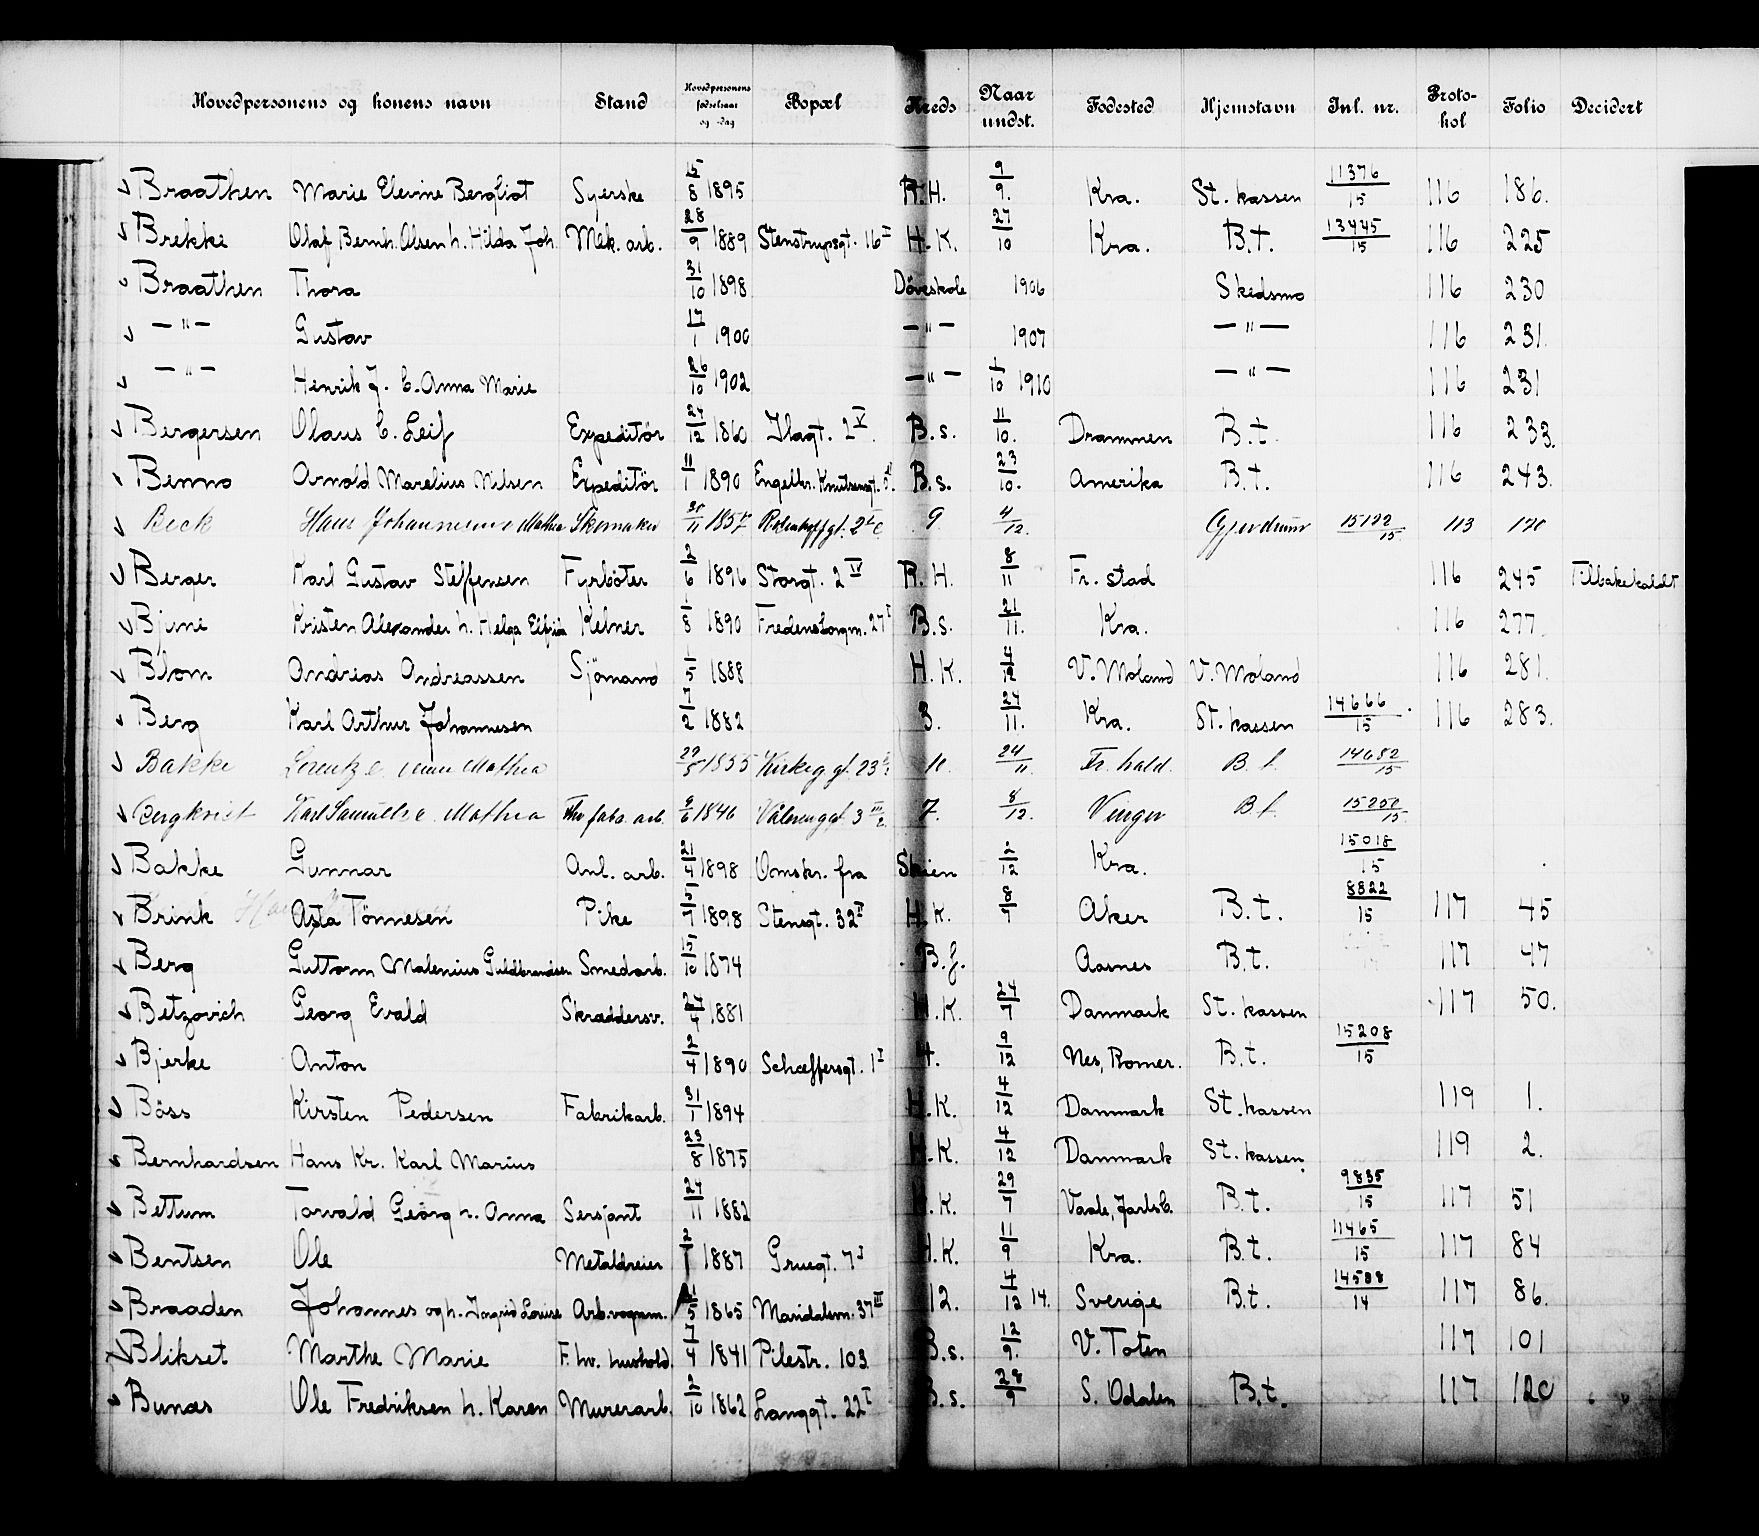 Hovedpersonens og konens navn Stand Hovedpersonens fødselsaar og -dag Bopæl Kreds Naar undst. Fødested Hjemstavn Inl. nr. Proto-kol Folio Decidert
Braathen Marie Elevine Bergliot Syerske 15/8 1895 R.H. 9/9. Kra. St. kassen 11376/15 116 186.
Brekke Olaf Bernh. Olsen h. Hilda Joh. Mek. arb. 28/9 1889 Stenstrupsgt. 16 I H.K. 27/10 Kra. B.t. 13445/15 116 225
Braathen Thora 31/10 1898 Döveskole 1906 Skedsmo 116 230
— " — Gustav 17/1 1900 — " — 1907 — " — 116 231.
— " — Henrik J. C. Anna Marie 26/10 1902 — " — 1/10 1910 — " — 116 231
Bergersen Olaus C. Leif Expeditör 27/12 1860 Ilagt. 2 V. B.s. 11/10. Drammen B.t. 116 233.
Benno Arnold Marelius Nilsen Expeditör 11/1 1890 Engelbr. Knutsensgt. 5. B.s. 23/10. Amerika B.t. 116 243.
Beck Hans Johannesen e Mathea Skomaker 1857 2 9. 4/12. Gjerdrum 15122/15 113 170
Berger Karl Gustav Steffensen Fyrböter 2/6 1896 Storgt. 2 IV R.H. 8/11 Fr. stad 116 245 Tilbakekaldt
Bjune Kristen Alexander h. Helga Elfrida Kelner 1/8 1890 Fredensborgv. 27 I B.s. 21/11. Kra. 116 277.
Blom Andreas Andreassen Sjömand 1/5 1888 H.K. 4/12 V. Moland V. Moland 116 281.
Berg Karl Arthur Johannesen 7/2 1882 3. 27/11. Kra. St. kassen 14666/15. 116 283.
Bakke Lorentz e. Mathea 29/5 1855 Kirkeg gt. 23 11. 24/11. Fr. hald. B.t. 14682/15
Bergkvist Karl Samuel e. Mathea fabr. arb. 9/6 1846 Vålereng gt. 3 III/2. 7. 8/12. Vinger B.t. 15250/15.
Bakke Gunnar Anl. arb. 21/4 1898 Omskr. fra Skien 2/12 Kra. 15018/15
Brink Asta Tönnesen Pike 5/7 1898 Stensgt. 32 I H.K. 8/7 Aker B.t. 8822/15 117 45
Berg Guttorm Malenius Guldbrandsen Smedarb. 15/10 1874 B.f. Aasnes B.t. 117 47
Betzovich Georg Evald Skræddersv. 27/4 1881 H.K. 24/7 Danmark St. kassen 117 50.
Bjerke Anton 2/4 1890 Schæffersgt. 1 I H. 9/12 Nes, Romer. B.t. 15208/15
Böss Kirsten Pedersen Fabrikarb. 31/1 1894 H.K. 4/12 Danmark St. kassen 119 1.
Bernhardsen Hans Kr. Karl Marius 23/8 1875 H.K. 4/12 Danmark St. kassen. 119 2.
Bettum Torvald Georg h. Anna Sersjant 27/11 1882 H.K. 29/7 Vaale, Jarlsb. B.t. 9835/15 117 51
Bentsen Ole Metaldreier 2/1 1887 Gruegt. 7 I H.K. 11/9 Kra. B.t. 11465/15 117 84
Braaden Johannes og h. Ingrid Louise Arb. vogsm. 1865 Maridalsvn. 37 III 12. 4/12 14. Sverige B.t. 14588/14 117 86.
Blikset Marthe Marie F. hv. hushold. 7/4 1841 Pilestr. 103 B.s. 12/9. V. Toten 117 101
Bunæs Ole Fredriksen h. Karen Murerarb. 2/10 1862 Langgt. 22 I B.s. 28/9 S. Odalen B.t. 117 120